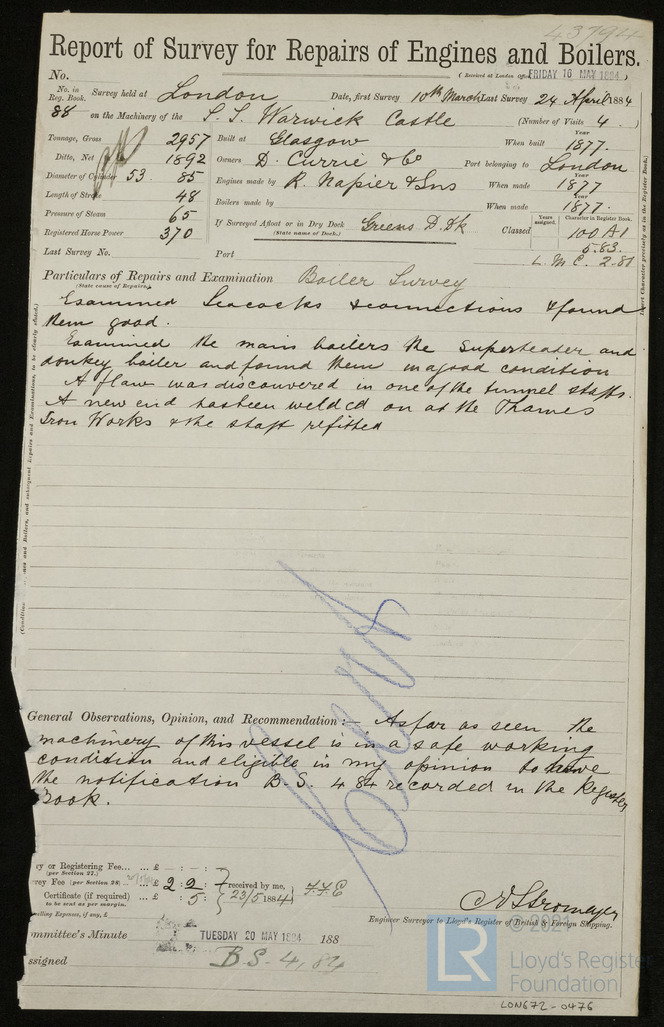 43794
Report of Survey for Repairs of Engines and Boilers.
No. (Received at London Office FRIDAY 16 MAY 1884)
No. in Reg. Book. Survey held at London Date, first Survey 10th March Last Survey 24 April 1884
88 on the Machinery of the S.S. Warwick Castle (Number of Visits 4)
Tonnage, Gross 2957 Built at Glasgow When built Year 1877.
Ditto, Net 1892 Owners D. Currie & Co Port belonging to London
Diameter of Cylinder 53. 85 Engines made by R. Napier & Sons When made Year 1877
Length of Stroke 48 Boilers made by When made Year 1877.
Pressure of Steam 65 If Surveyed Afloat or in Dry Dock Greens D. Dk Classed Years assigned. Character in Register Book. 100 A1
(State name of Dock.)
Registered Horse Power 370 5.83.
Last Survey No. Port L.M.C. 2.81
Particulars of Repairs and Examination Boiler Survey
(State cause of Repairs)
Examined Seacocks & connections & found
them good.
Examined the main boilers the Superheader and
donkey boiler and found them in a good condition
A flaw was discouvered in one of the tunnel shafts.
A new end has been welded on at the Thames
Iron Works & the shaft refitted
General Observations, Opinion, and Recommendation:— As far as seen the
machinery of this vessel is in a safe working
condition and eligible in my opinion to have
the notification B.S. 4 84 recorded in the Register
Book.
ry or Registering Fee... ... £ : :
(per Section 27.)
vey Fee (per Section 28) ... £ 2 : 2 : received by me,
Certificate (if required) ... : 5 : 23/5 1884
to be sent as per margin.
elling Expenses, if any, £
Engineer Surveyor to Lloyd's Register of British & Foreign Shipping.
ommittee's Minute TUESDAY 20 MAY 1884 188
ssigned B.S. 4,84
© 2021
LR
Lloyd's Register
Foundation
LON672-0476